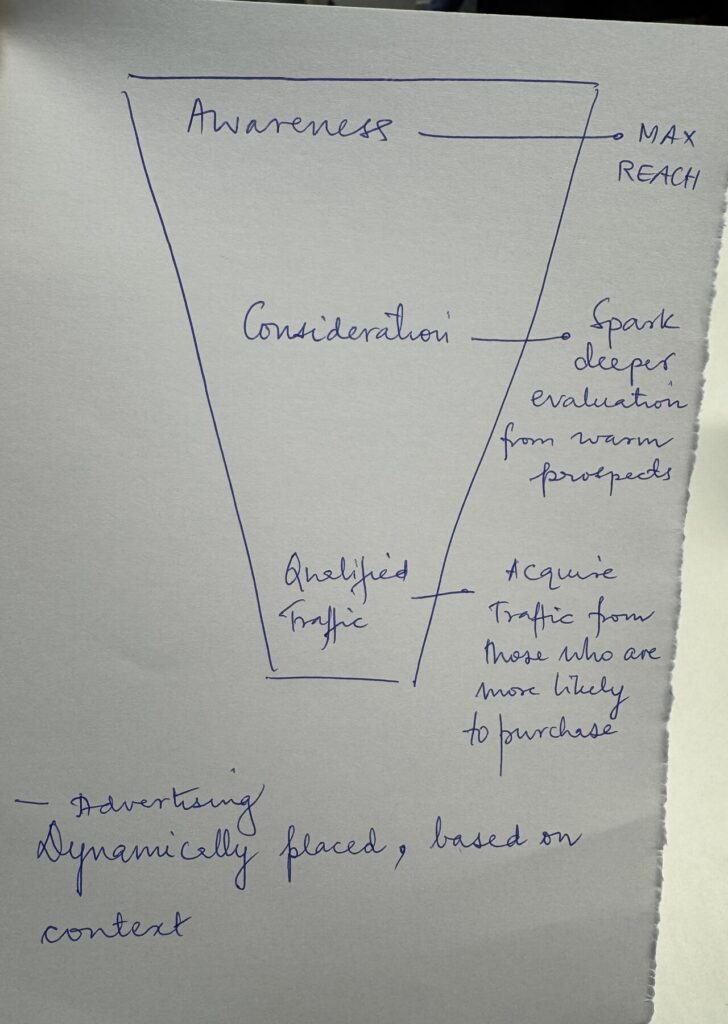 Awareness
MAX
REACH
Consideration
Spark
deeper
evaluation
from warm
prospects
Qualified
Traffic
Acquire
Traffic from
those who are
more likely
to purchase
— Advertising
Dynamically placed, based on
context